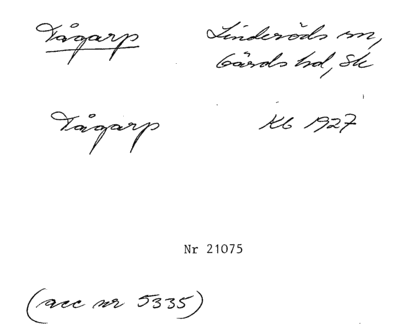 Tågarp Linderöds sn,
Gärds hd, Sk
Tågarp Kb 1927
Nr 21075
(acc nr 5335)